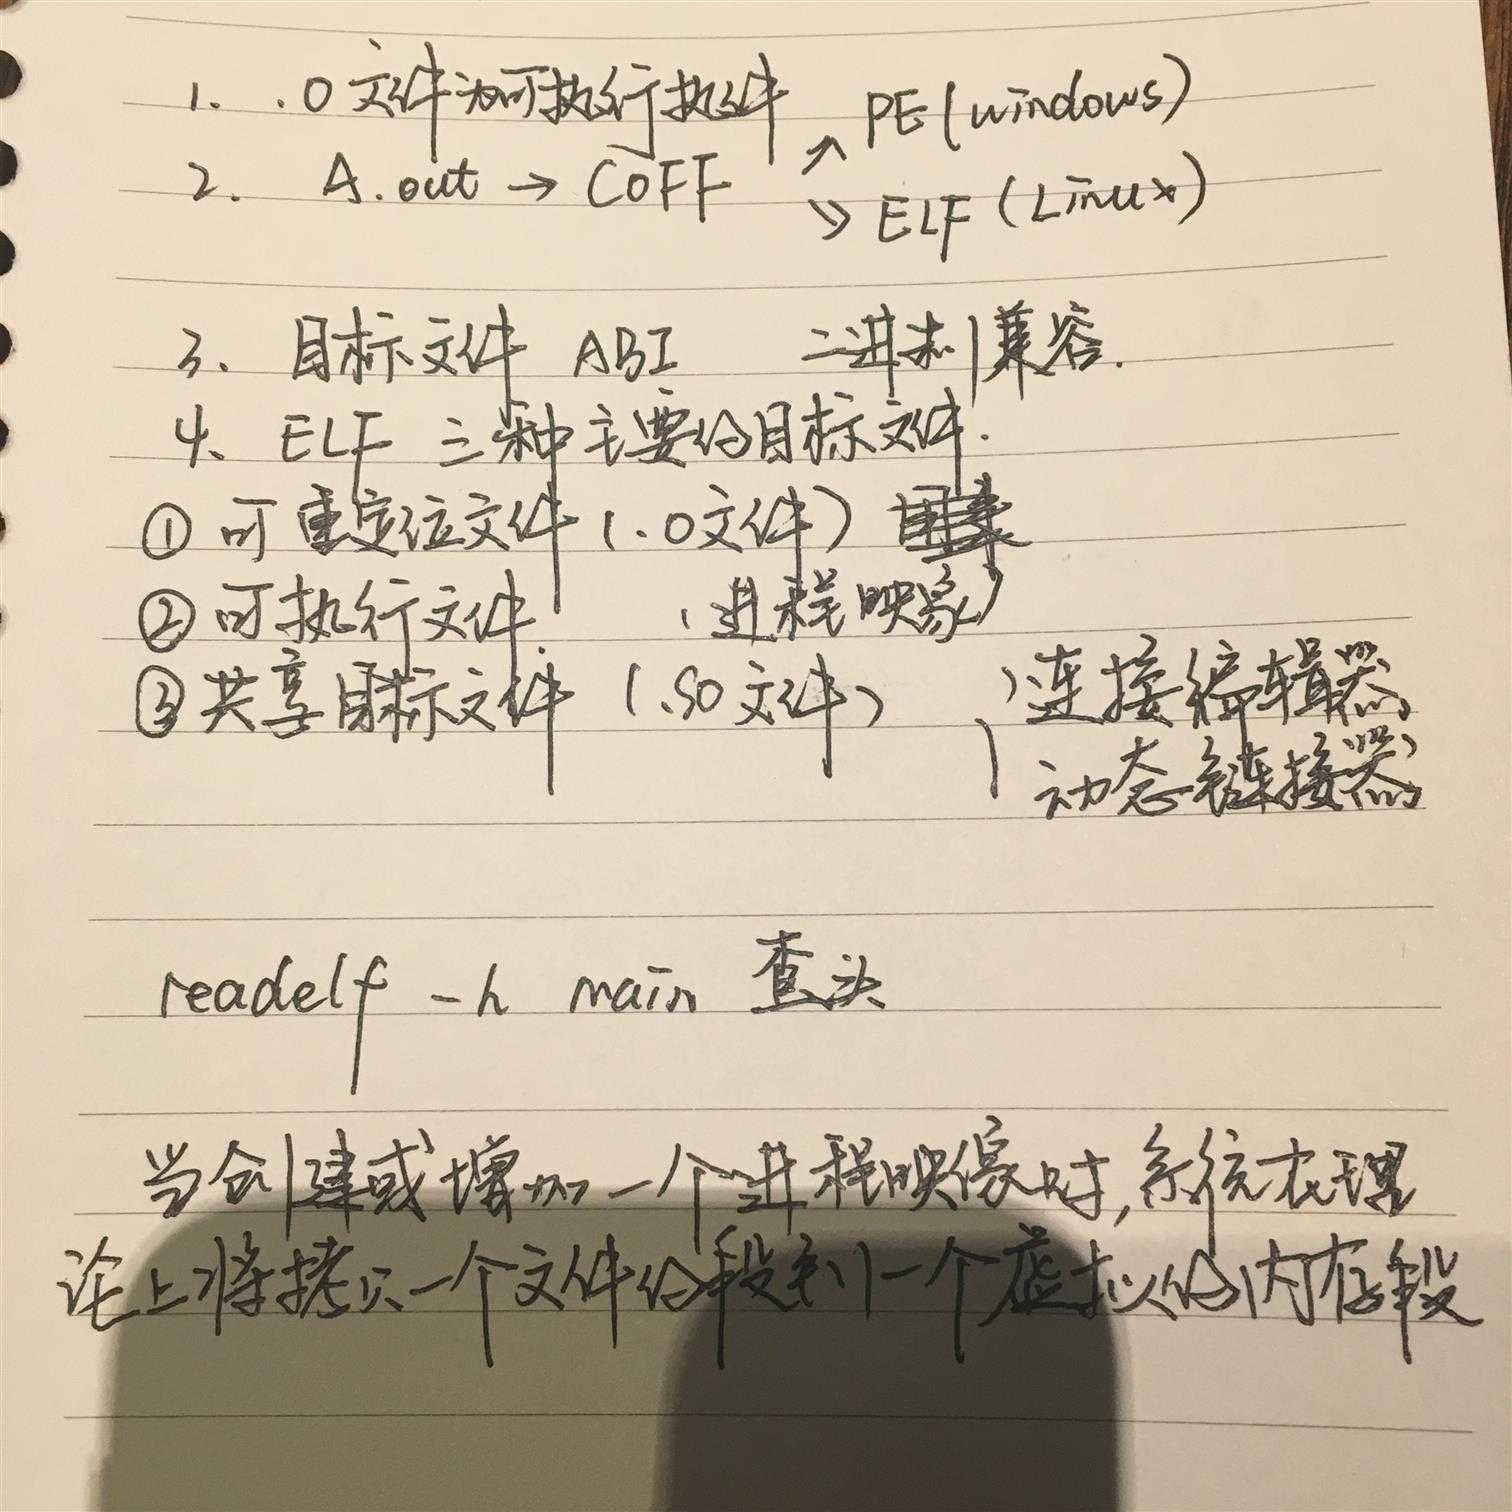 1. .O文件为可执行执件
2. A.out → COFF ↗ PE(windows)
↘ ELF (Linux)
3、目标文件 ABI 二进制兼容.
4、ELF 三种主要的目标文件.
① 可重定位文件(.O文件)
② 可执行文件. (进程映象)
③ 共享目标文件 (.SO文件) 连接编辑器
动态链接器
readelf -h main 查头
当创建或增加一个进程映像时,系统在理
论上将拷贝一个文件的段到一个虚拟的内存段